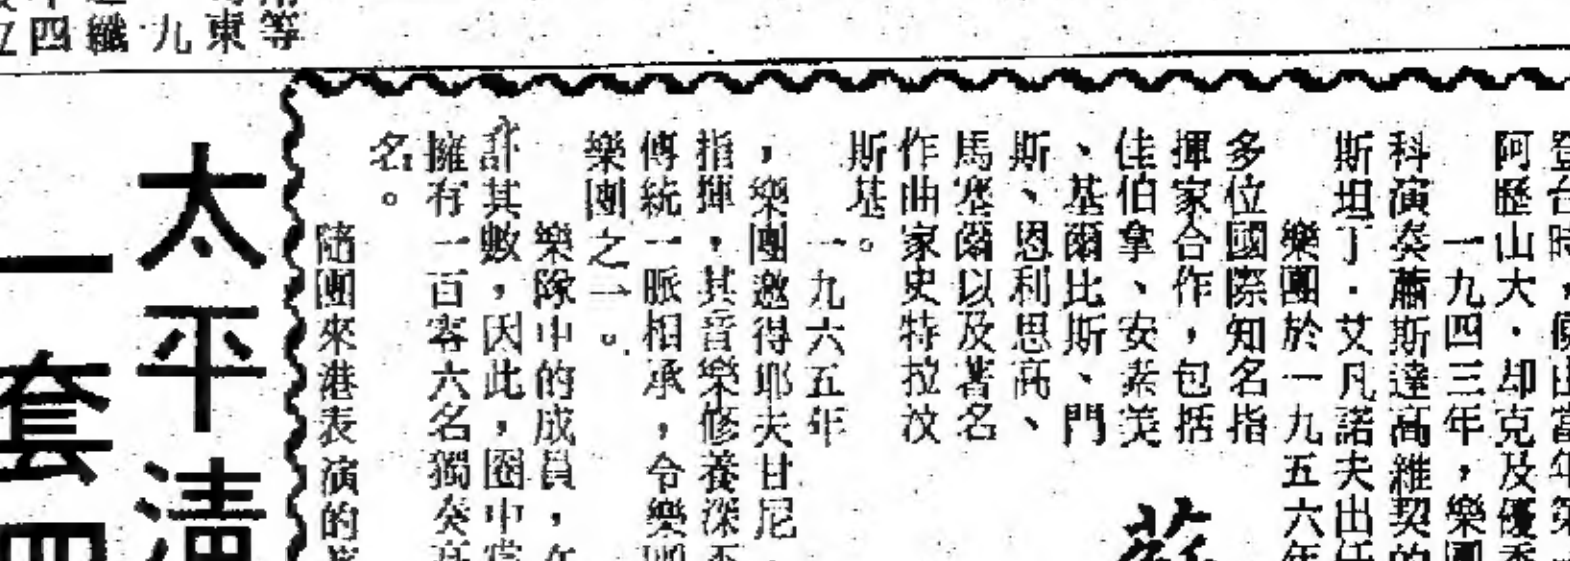 等
東
九
纖
四
立
登台時，便由當年第
阿歷山大·却克及優秀
一九四三年，樂團
科演奏蕭斯達高維契的
斯坦丁·艾凡諾夫出任
樂團於一九五六年
多位國際知名指
揮家合作，包括
佳伯拿、安素美
、基爾比斯、門
斯、恩利思高、
馬塞爾以及著名
作曲家史特拉汶
斯基。
一九六五年
，樂團邀得耶夫甘尼
指揮，其音樂修養深
傳統一脈相承，令樂團
樂團之一。
樂隊中的成員，在
計其數，因此，團中當
擁有一百零六名獨奏
名。
隨團來港表演的
太平清
一套四
蘇